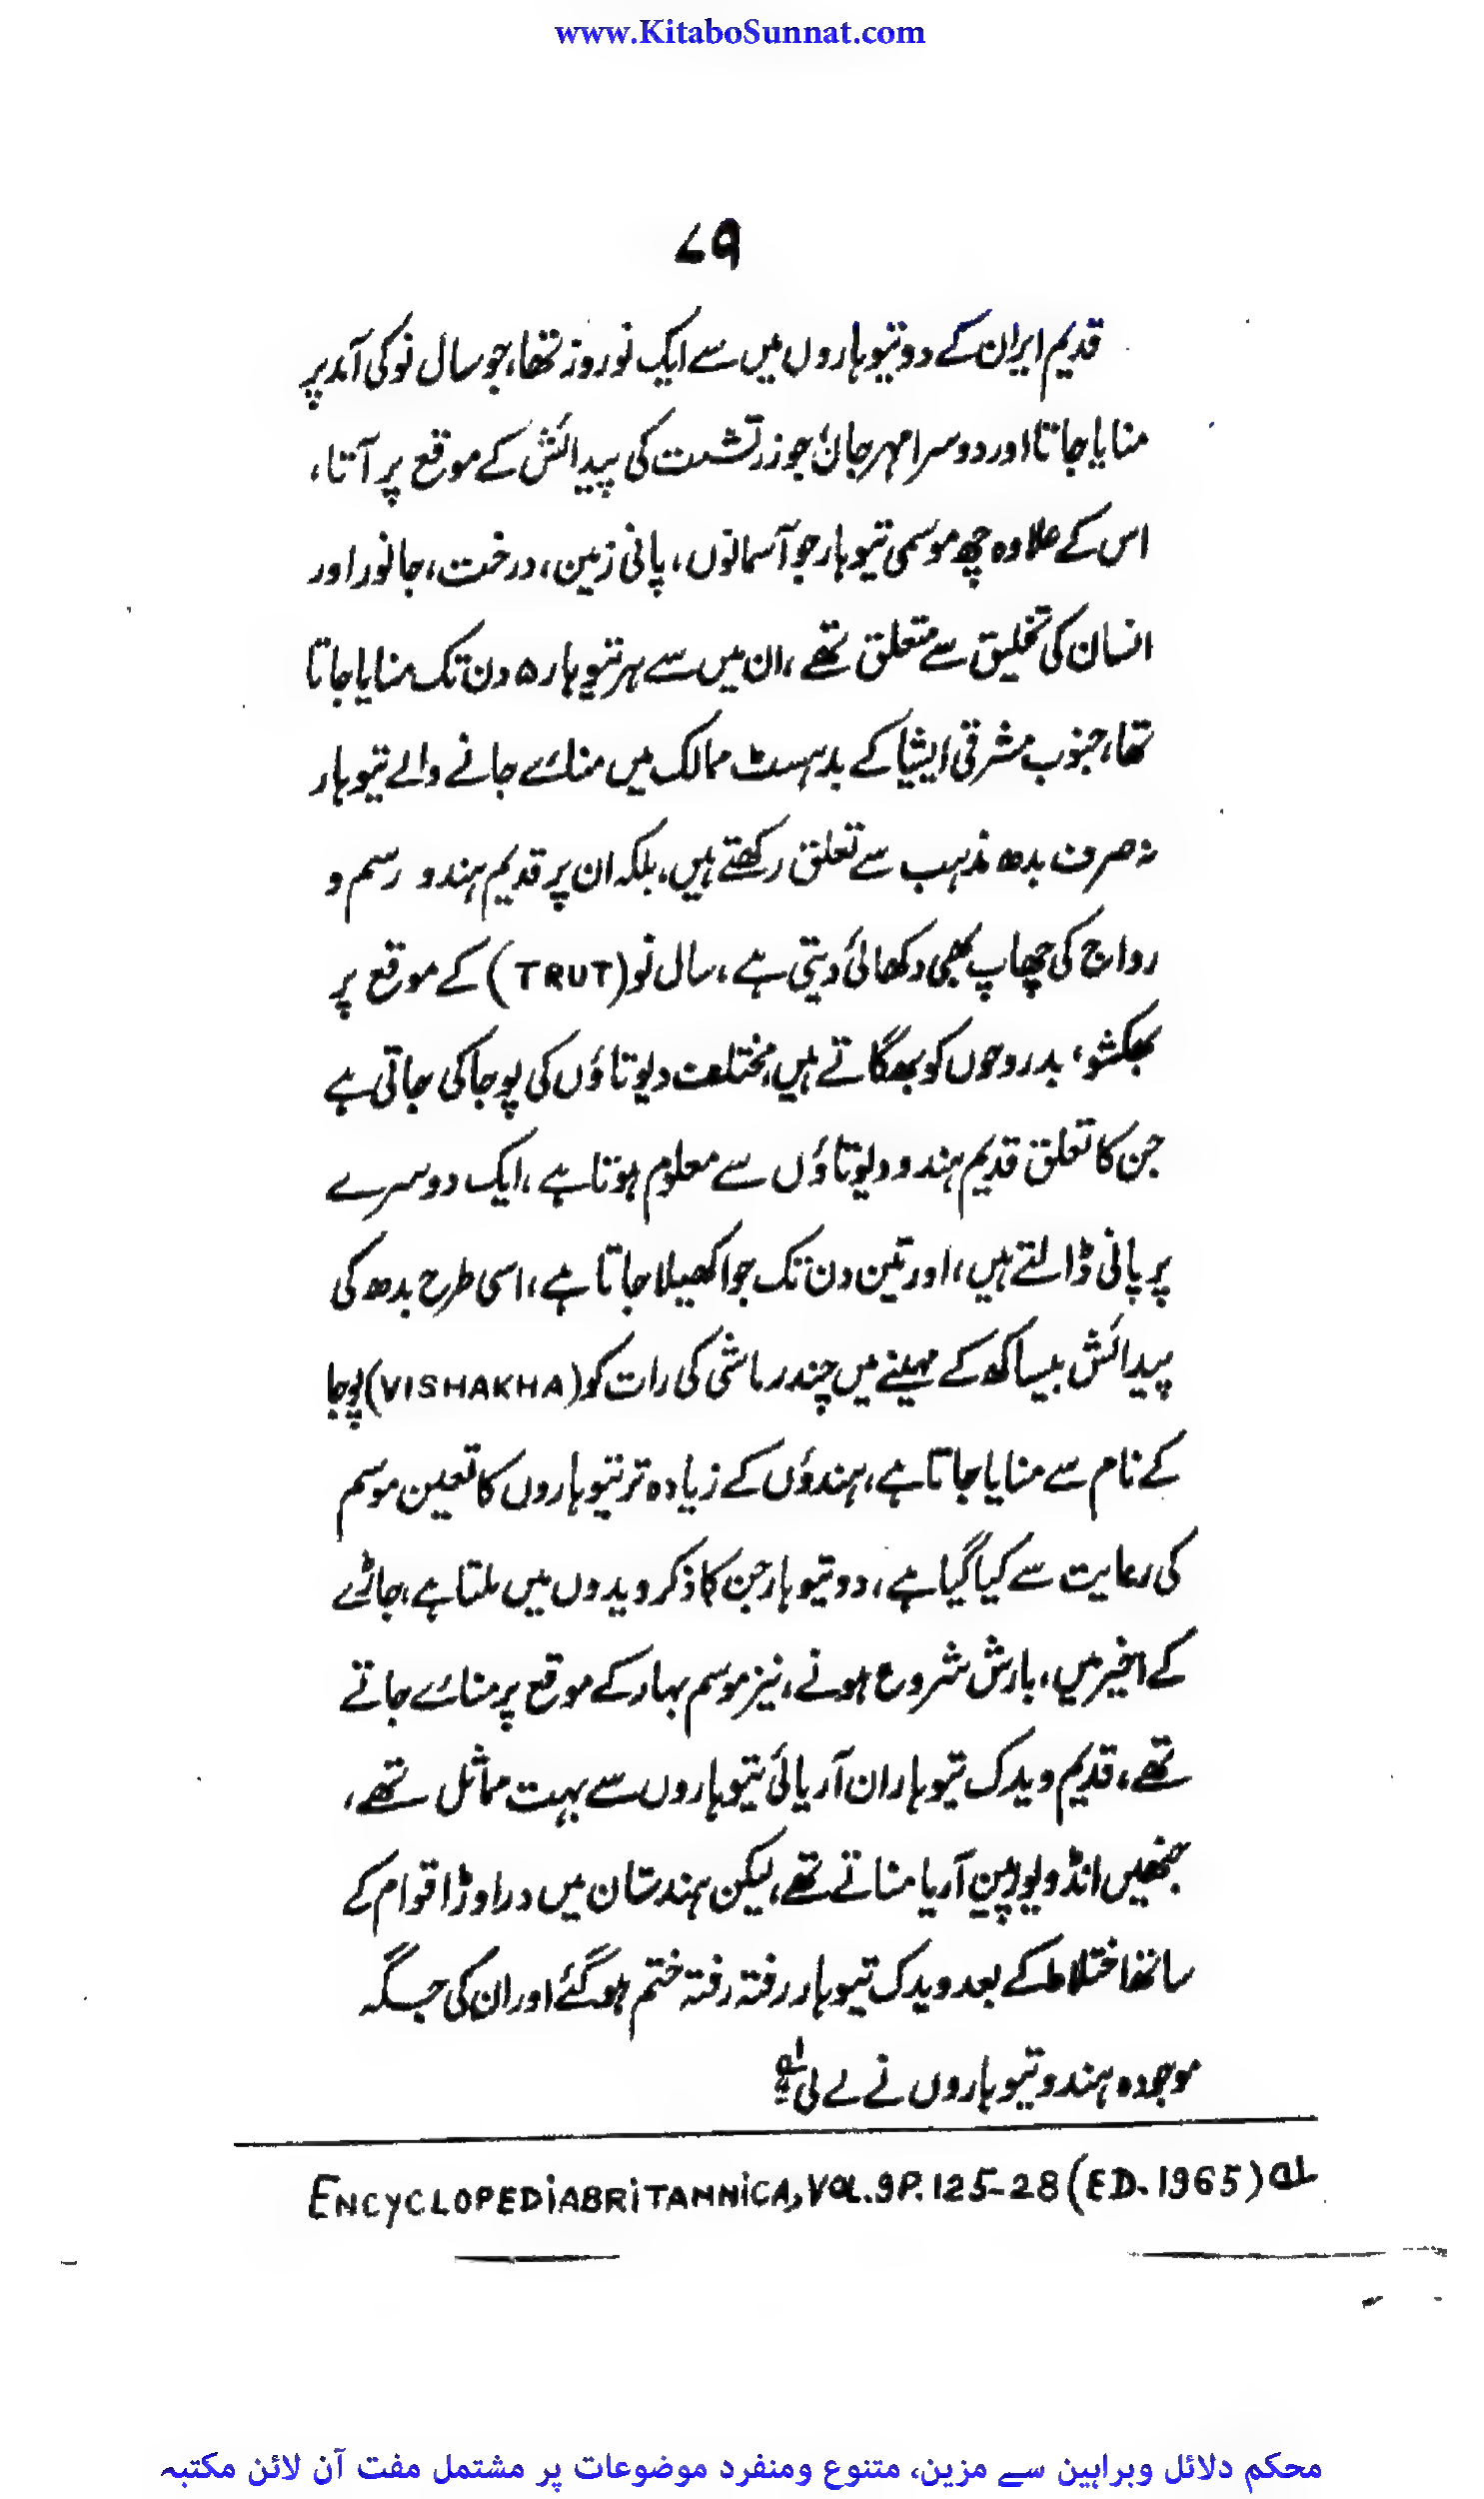 www.KitaboSunnat.com
۷۹
قدیم ایران کے دو تیوہاروں میں سے ایک نوروز تھا، جو سال نو کی آمد پر
منایا جاتا اور دوسرا مہرجان جو زرتشت کی پیدائش کے موقع پر آتا،
اس کے علاوہ چھ موسمی تیوہار جو آسمانوں، پانی زمین، درخت، جانور اور
انسان کی تخلیق سے متعلق تھے، ان میں سے ہر تیوہار ۵ دن تک منایا جاتا
تھا، جنوب مشرقی ایشیا کے بدہسٹ ممالک میں منائے جانے والے تیوہار
نہ صرف بدھ مذہب سے تعلق رکھتے ہیں، بلکہ ان پر قدیم ہندو رسم و
رواج کی چھاپ بھی دکھائی دیتی ہے، سال نو (TRUT) کے موقع پر
بھکشو، بدروحوں کو بھگاتے ہیں، مختلف دیوتاؤں کی پوجا کی جاتی ہے
جن کا تعلق قدیم ہندو دیوتاؤں سے معلوم ہوتا ہے، ایک دوسرے
پر پانی ڈالتے ہیں، اور تین دن تک جوا کھیلا جاتا ہے، اسی طرح بدھ کی
پیدائش بیساکھ کے مہینے میں چندر ماشی کی رات کو (VISHAKHA) پوجا
کے نام سے منایا جاتا ہے، ہندوؤں کے زیادہ تر تیوہاروں کا تعین موسم
کی رعایت سے کیا گیا ہے، دو تیوہار جن کا ذکر ویدوں میں ملتا ہے، جاڑے
کے اخیر میں، بارش شروع ہونے، نیز موسم بہار کے موقع پر منائے جاتے
تھے، قدیم ویدک تیوہار ان آریائی تیوہاروں سے بہت مماثل تھے،
جنھیں انڈو یورپین آریا مناتے تھے، لیکن ہندستان میں دراوڑ اقوام کے
ساتھ اختلاط کے بعد ویدک تیوہار رفتہ رفتہ ختم ہو گئے اور ان کی جگہ
موجودہ ہندو تیوہاروں نے لے لی۔؂۱
؂۱ ENCYCLOPEDIA BRITANNICA, VOL. 9 P. 125-28 (ED. 1965)
محکم دلائل وبراہین سے مزین، متنوع ومنفرد موضوعات پر مشتمل مفت آن لائن مکتبہ